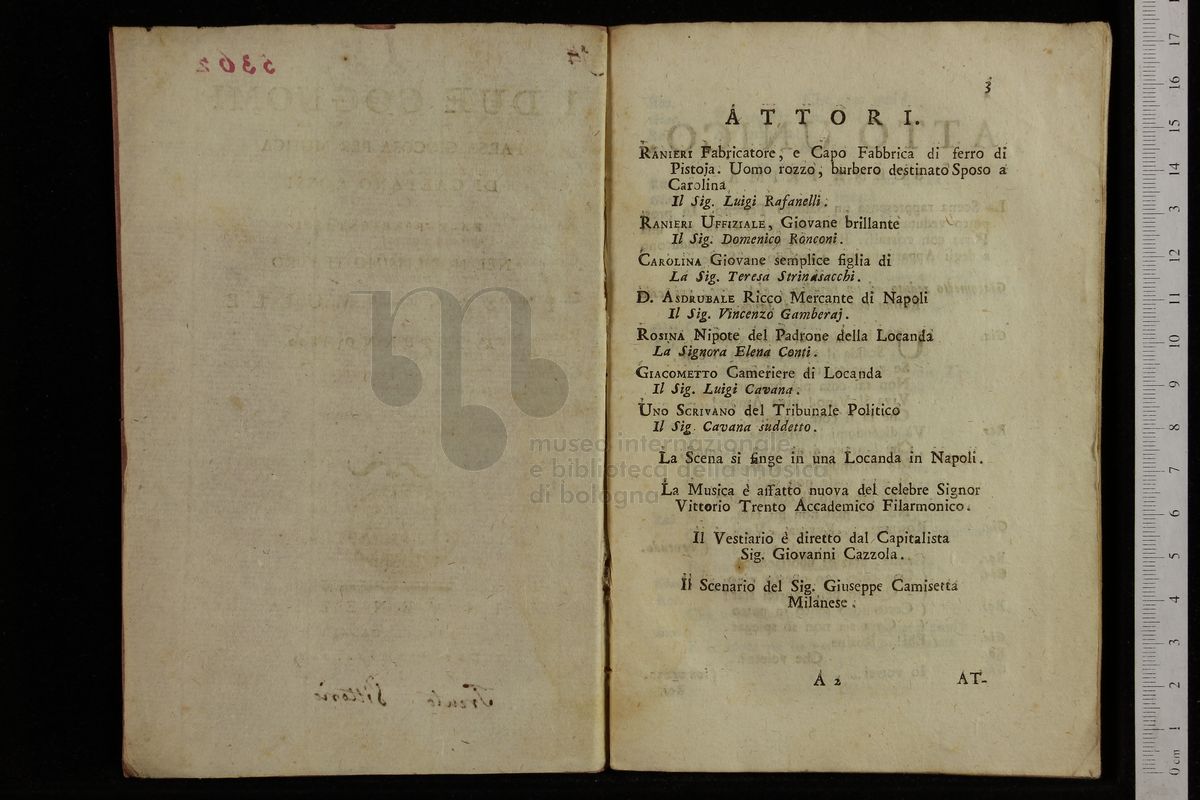 3
ATTORI.
RANIERI Fabricatore, e Capo Fabbrica di ferro di
Pistoja. Uomo rozzo, burbero destinato Sposo a
Carolina
Il Sig. Luigi Rafanelli.
RANIERI UFFIZIALE, Giovane brillante
Il Sig. Domenico Ronconi.
CAROLINA Giovane semplice figlia di
La Sig. Teresa Strinasacchi.
D. ASDRUBALE Ricco Mercante di Napoli
Il Sig. Vincenzo Gamberaj.
ROSINA Nipote del Padrone della Locanda
La Signora Elena Conti.
GIACOMETTO Cameriere di Locanda
Il Sig. Luigi Cavana.
UNO SCRIVANO del Tribunale Politico
Il Sig. Cavana suddetto.
La Scena si finge in una Locanda in Napoli.
La Musica è affatto nuova del celebre Signor
Vittorio Trento Accademico Filarmonico.
Il Vestiario è diretto dal Capitalista
Sig. Giovanni Cazzola.
Il Scenario del Sig. Giuseppe Camisetta
Milanese.
A 2 AT-
5302
Trento Vittorio
museo internazionale
e biblioteca della musica
di bologna
0 cm 1 2 3 4 5 6 7 8 9 10 11 12 13 14 15 16 17